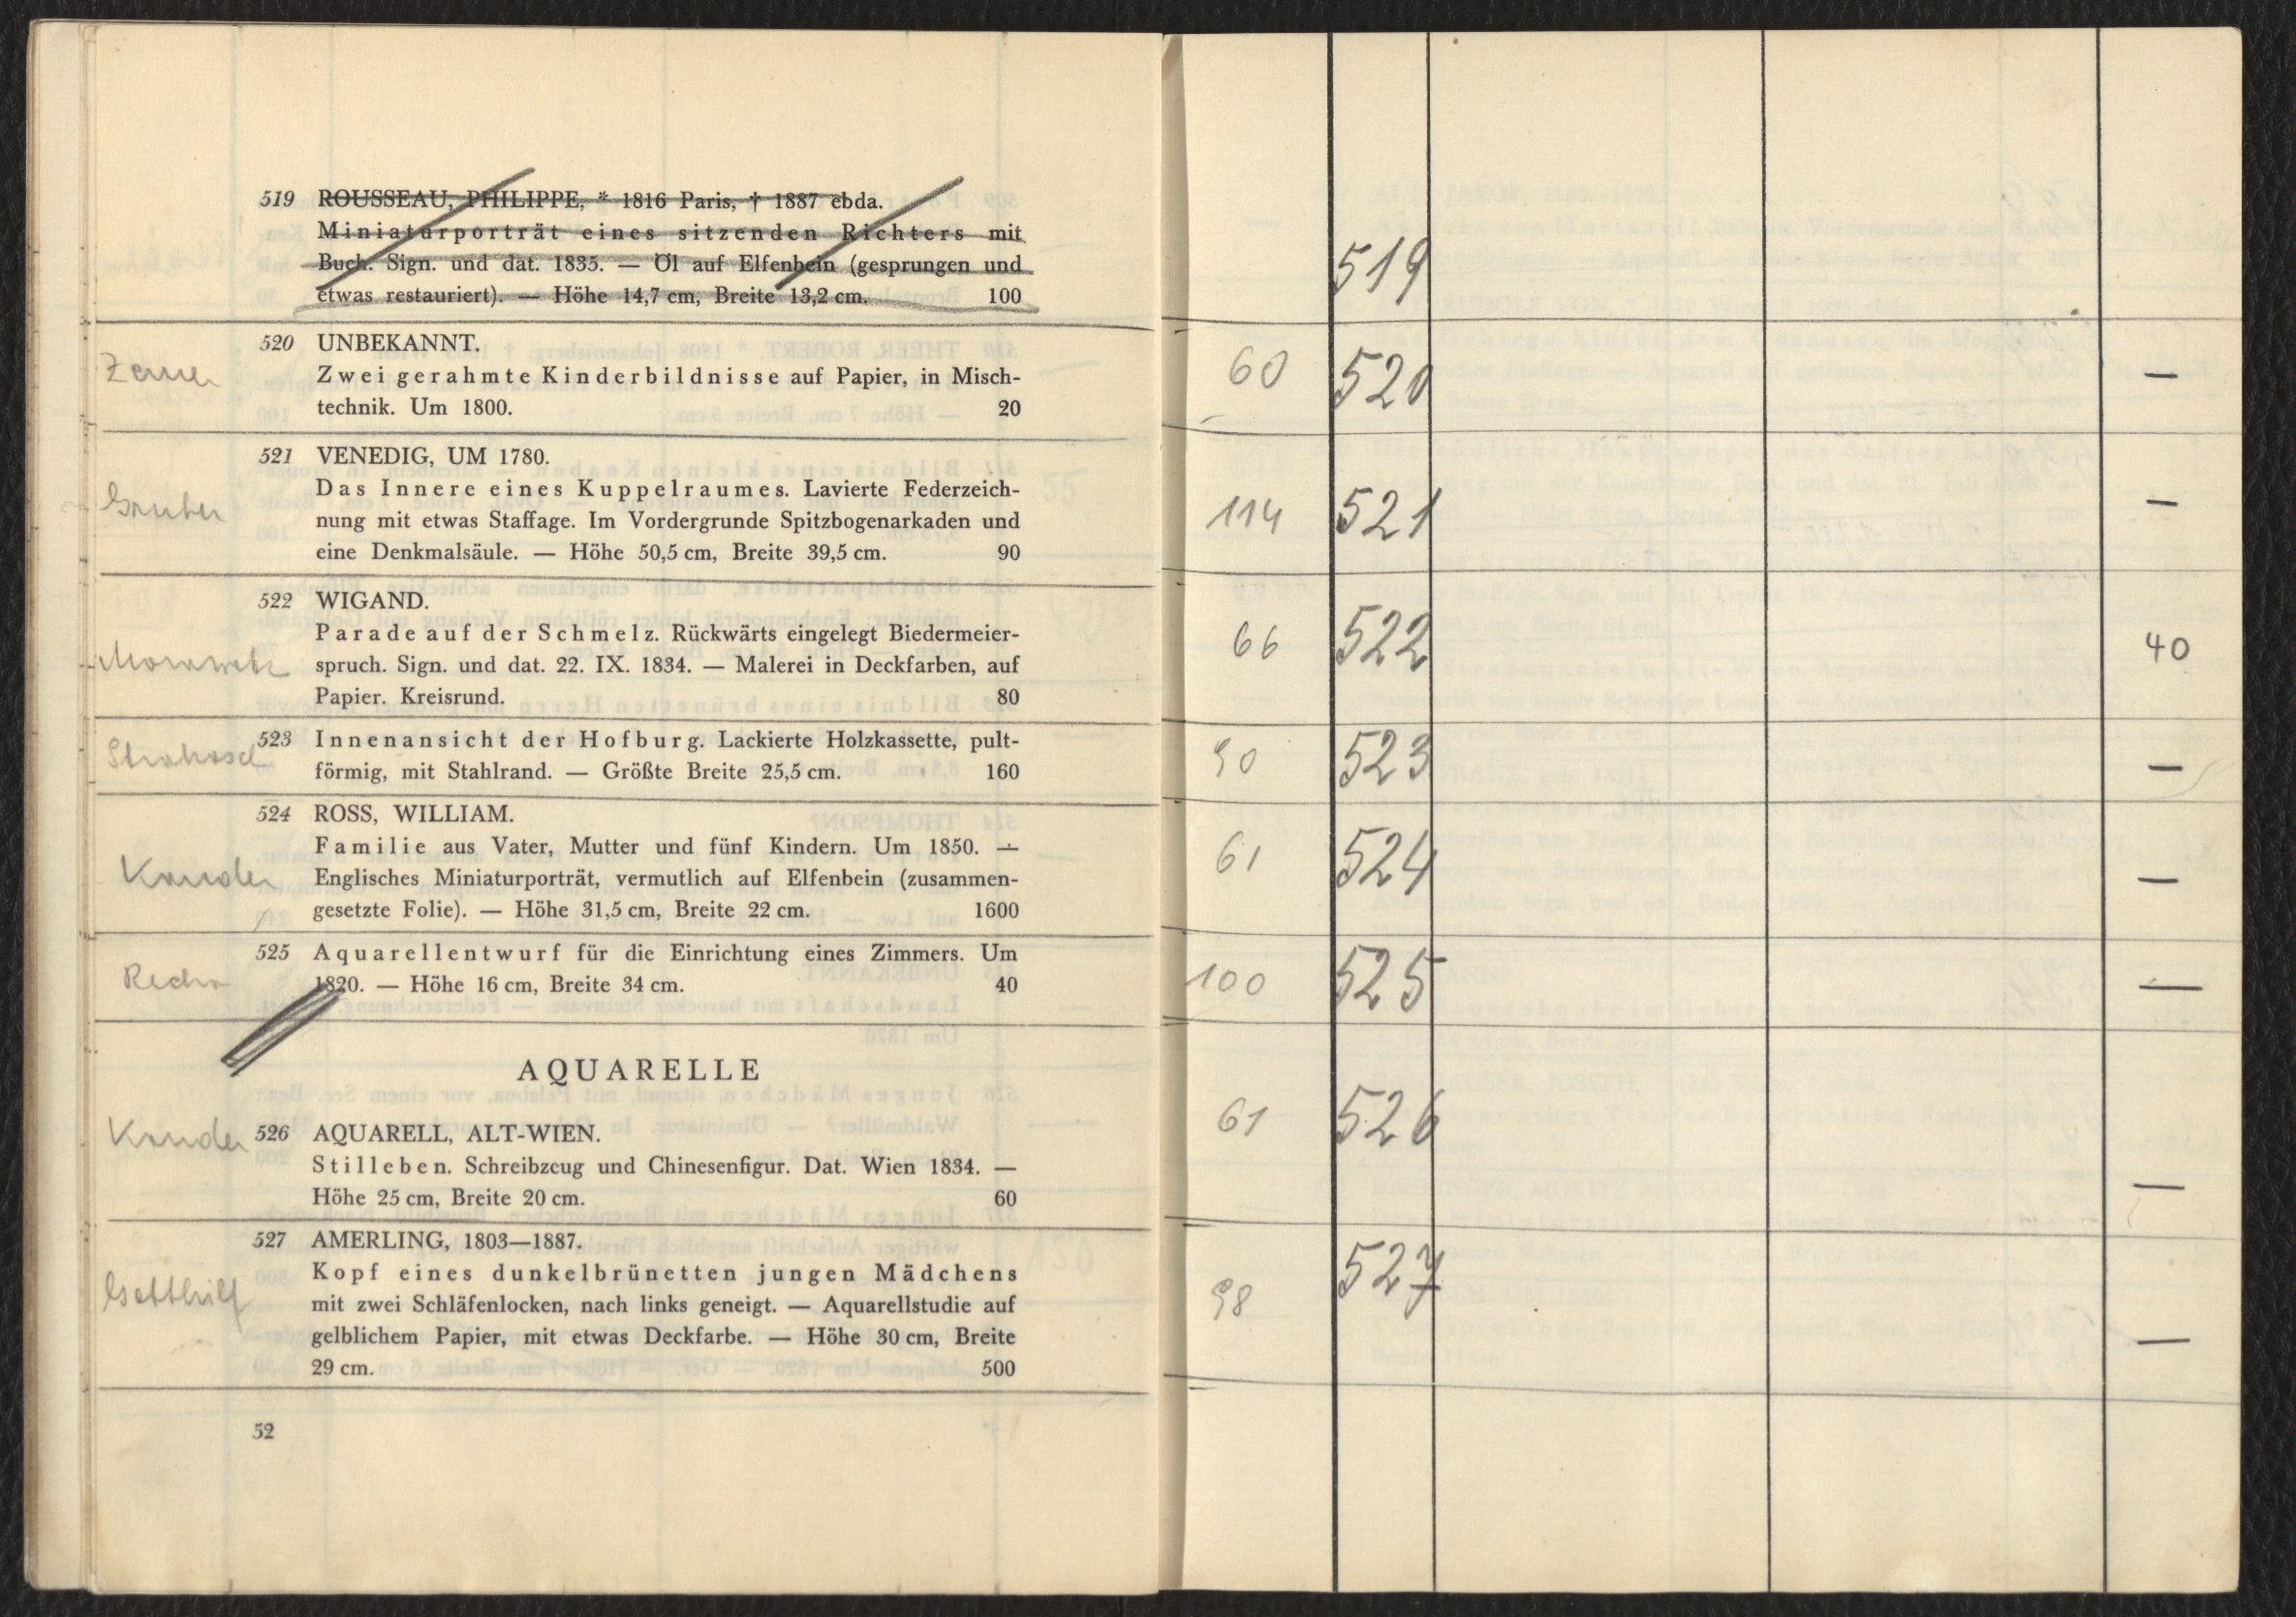 519 ROUSSEAU, PHILIPPE, * 1816 Paris, † 1887 ebda.
Miniaturporträt eines sitzenden Richters mit
Buch. Sign. und dat. 1835. — Öl auf Elfenbein (gesprungen und
etwas restauriert). — Höhe 14,7 cm, Breite 13,2 cm. 100
520 UNBEKANNT.
Zwei gerahmte Kinderbildnisse auf Papier, in Misch-
technik. Um 1800. 20
521 VENEDIG, UM 1780.
Gruber
Das Innere eines Kuppelraumes. Lavierte Federzeich-
nung mit etwas Staffage. Im Vordergrunde Spitzbogenarkaden und
eine Denkmalsäule. — Höhe 50,5 cm, Breite 39,5 cm. 90
522 WIGAND.
Parade auf der Schmelz. Rückwärts eingelegt Biedermeier-
Morawetz
spruch. Sign. und dat. 22. IX. 1834. — Malerei in Deckfarben, auf
Papier. Kreisrund. 80
523 Innenansicht der Hofburg. Lackierte Holzkassette, pult-
förmig, mit Stahlrand. — Größte Breite 25,5 cm. 160
524 ROSS, WILLIAM.
Familie aus Vater, Mutter und fünf Kindern. Um 1850. —
Kander
Englisches Miniaturporträt, vermutlich auf Elfenbein (zusammen-
gesetzte Folie). — Höhe 31,5 cm, Breite 22 cm. 1600
525 Aquarellentwurf für die Einrichtung eines Zimmers. Um
1820. — Höhe 16 cm, Breite 34 cm. 40
AQUARELLE
Kander 526 AQUARELL, ALT-WIEN.
Stilleben. Schreibzeug und Chinesenfigur. Dat. Wien 1834. —
Höhe 25 cm, Breite 20 cm. 60
527 AMERLING, 1803—1887.
Kopf eines dunkelbrünetten jungen Mädchens
Gotthilf
mit zwei Schläfenlocken, nach links geneigt. — Aquarellstudie auf
gelblichem Papier, mit etwas Deckfarbe. — Höhe 30 cm, Breite
29 cm. 500
52
519
60 520 —
114 521 —
66 522 40
90 523 —
61 524 —
100 525 —
61 526 —
98 527 —